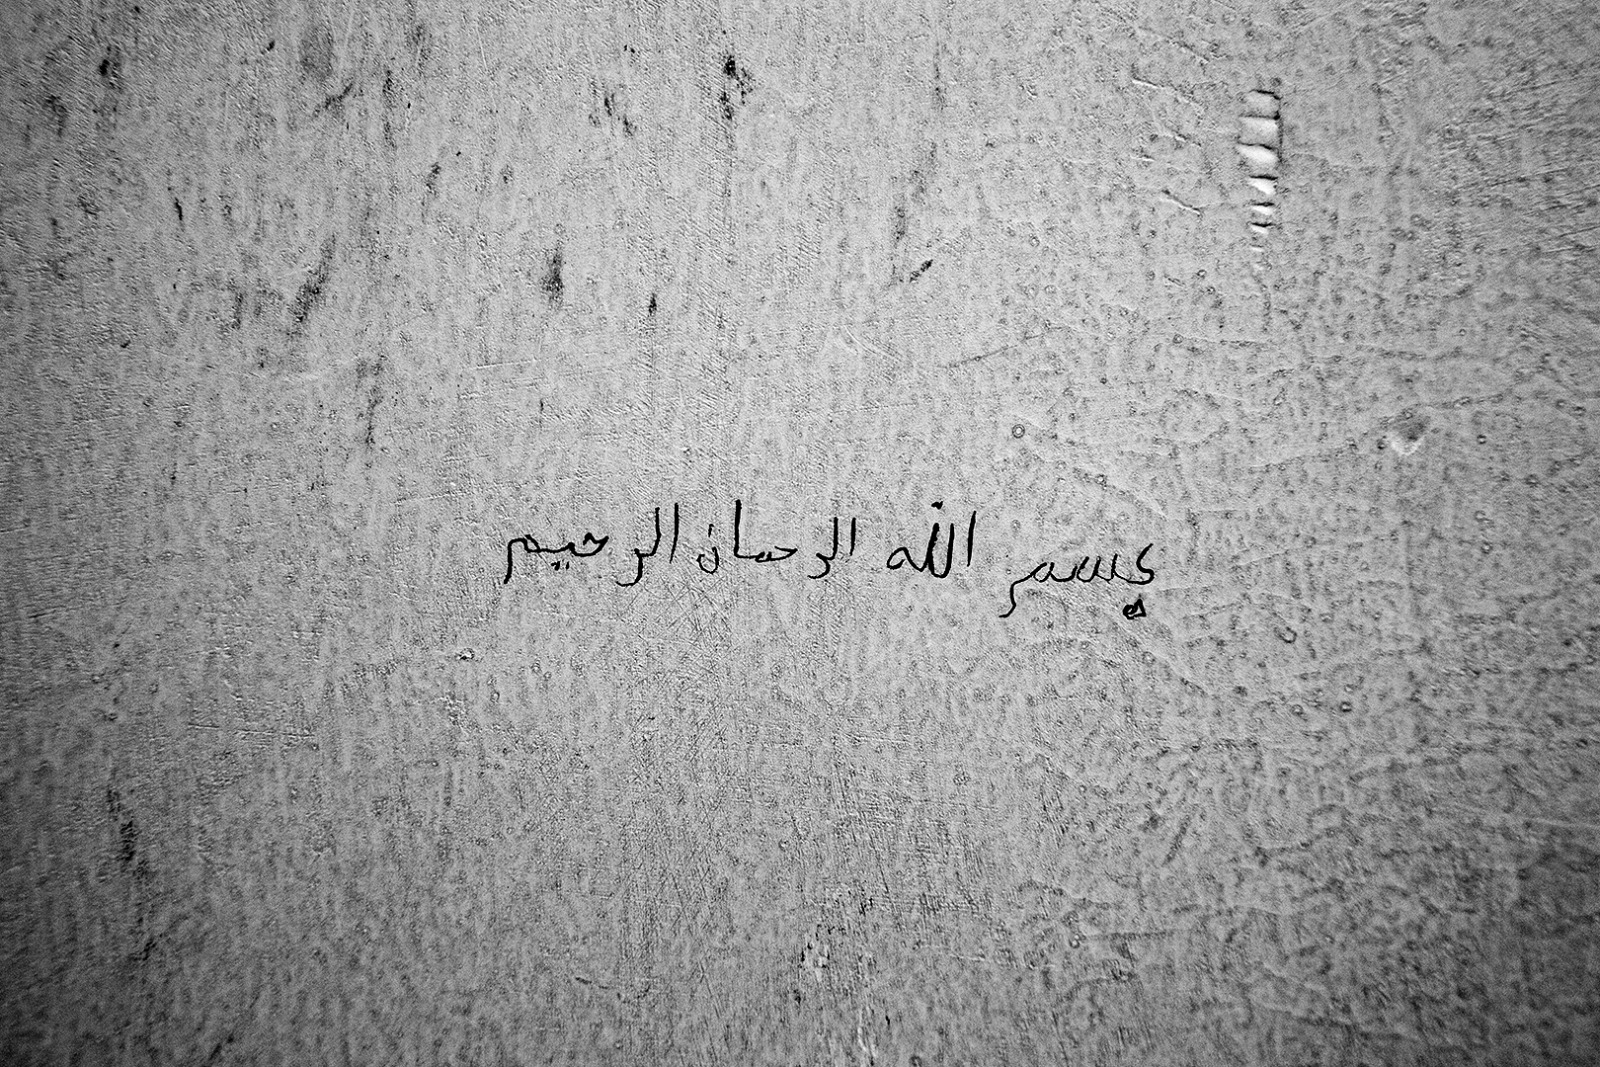 بسم الله الرحمان الرحيم